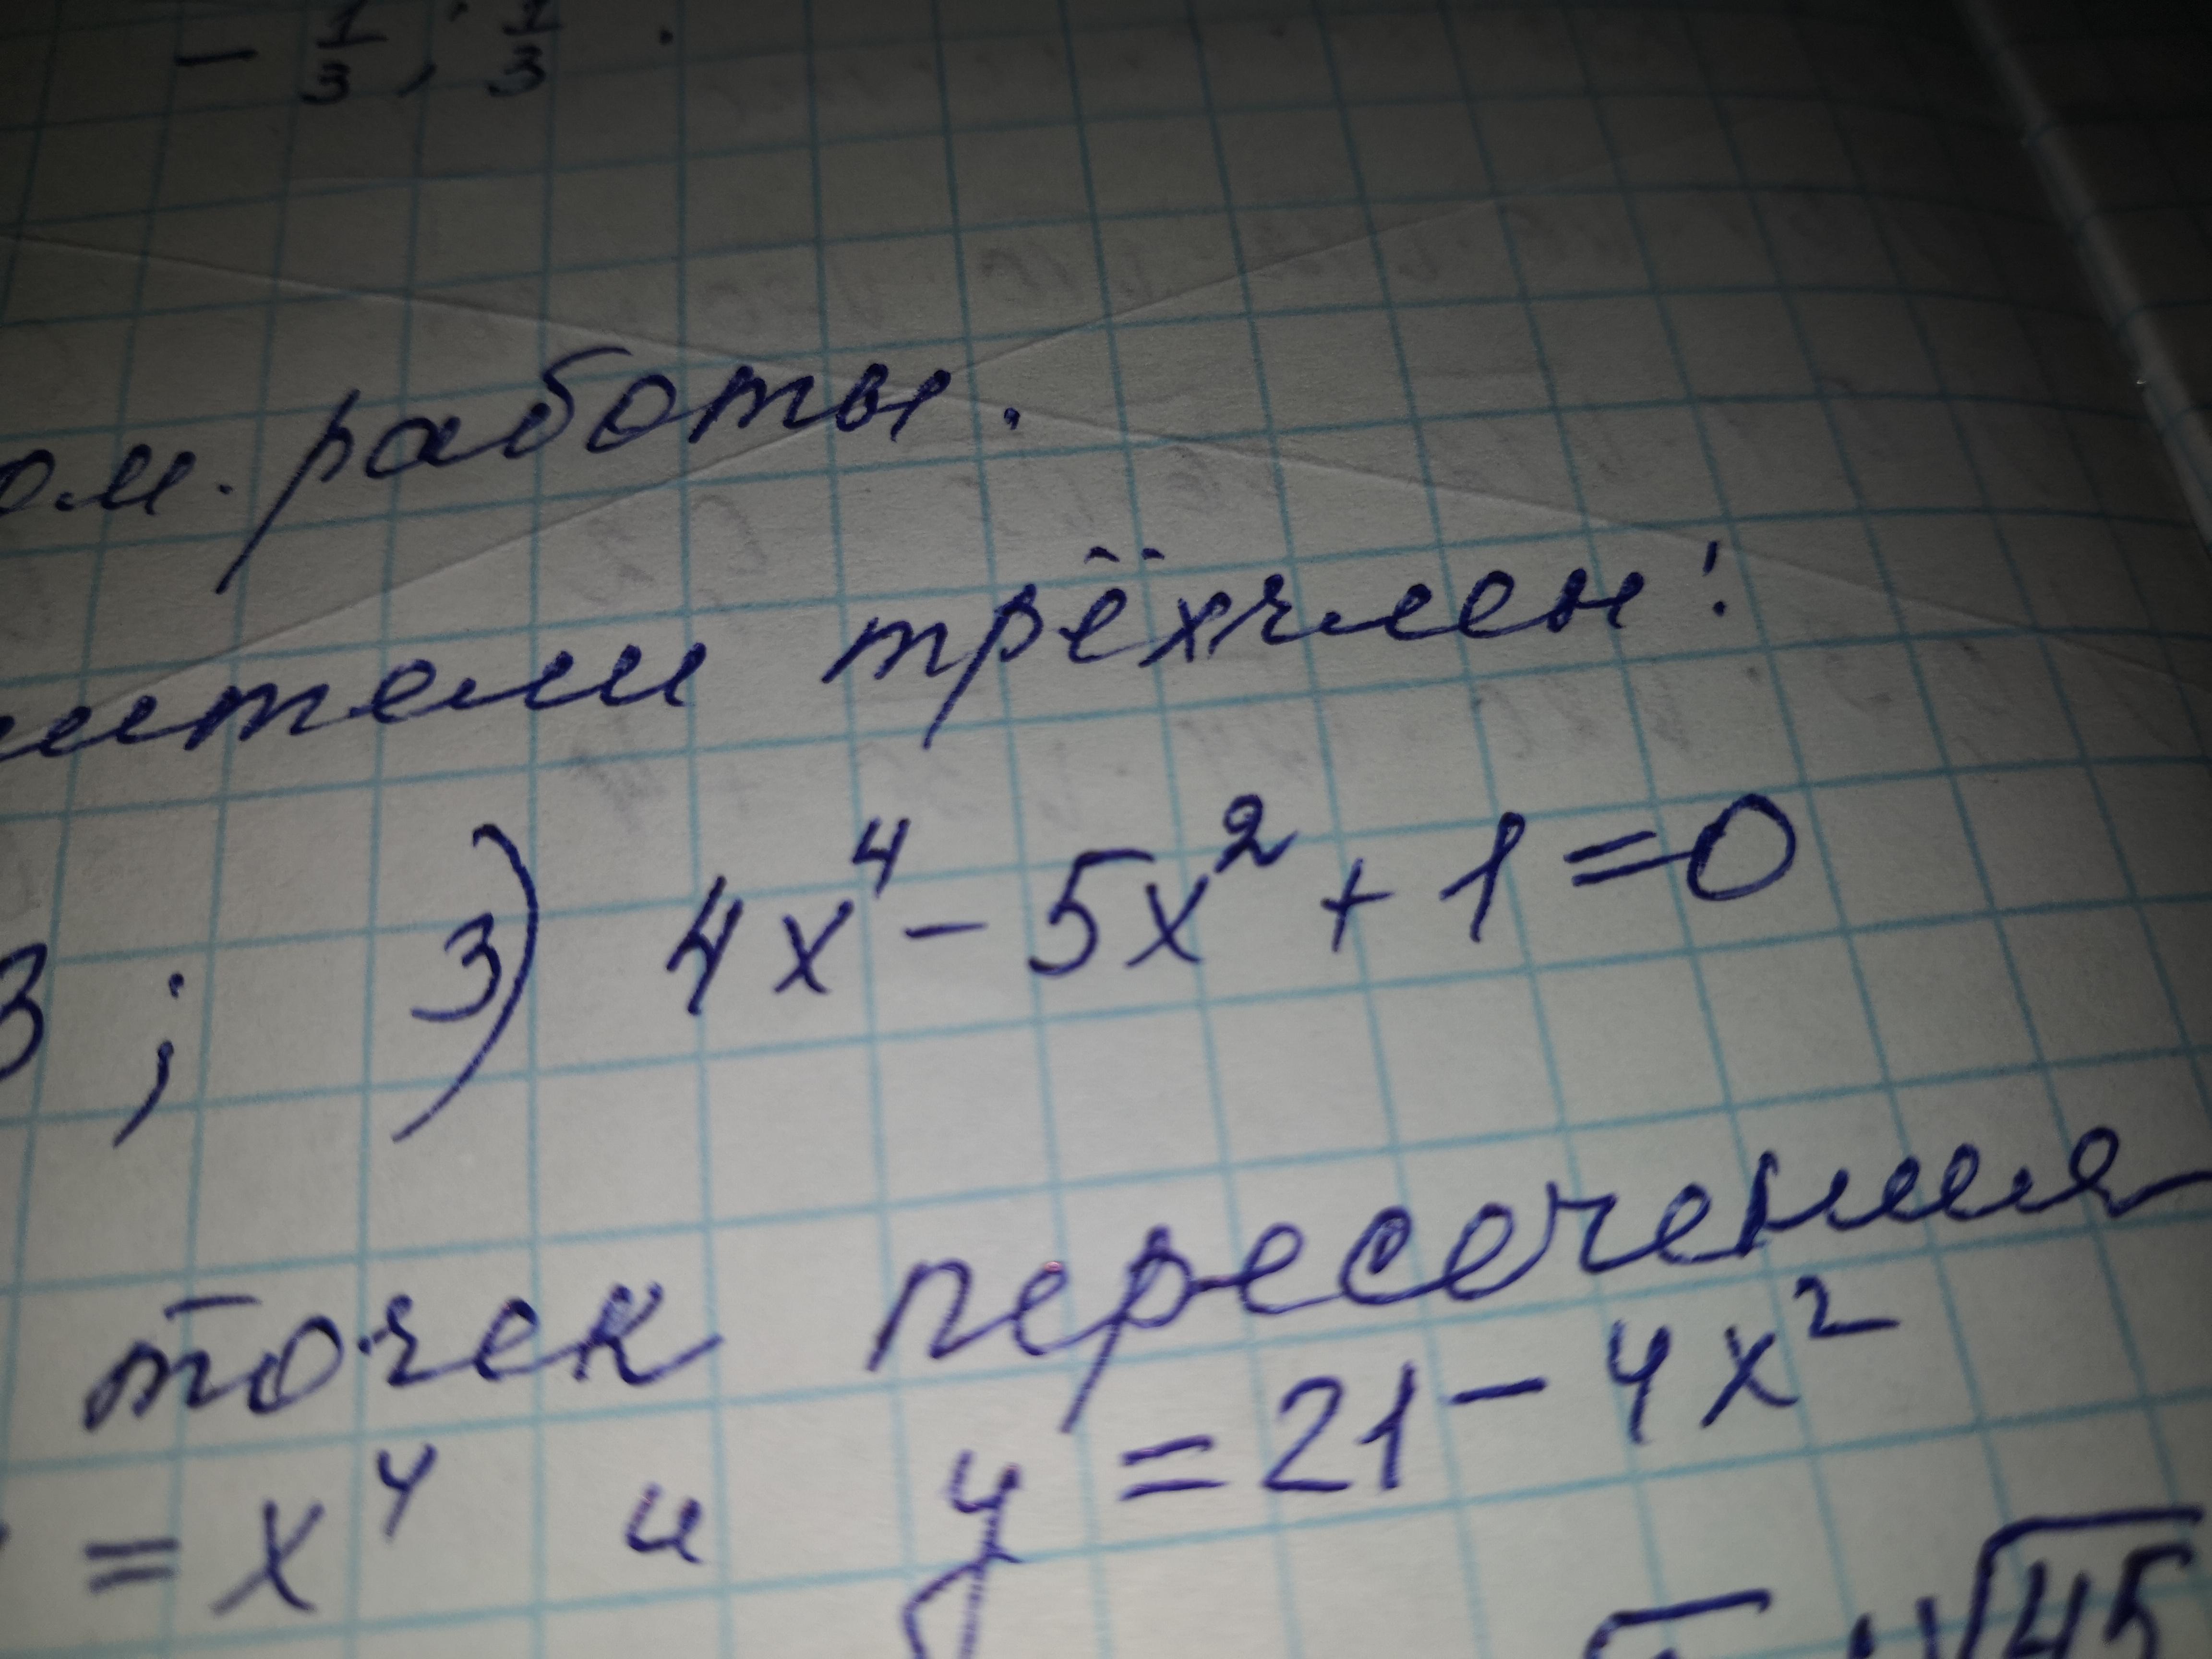 - 1/3; 1/3.
ом. работы.
ители трёхчлен:
3; 3) 4x⁴ - 5x² + 1 = 0
точек пересечения
= x⁴ и y = 21 - 4x²
√45